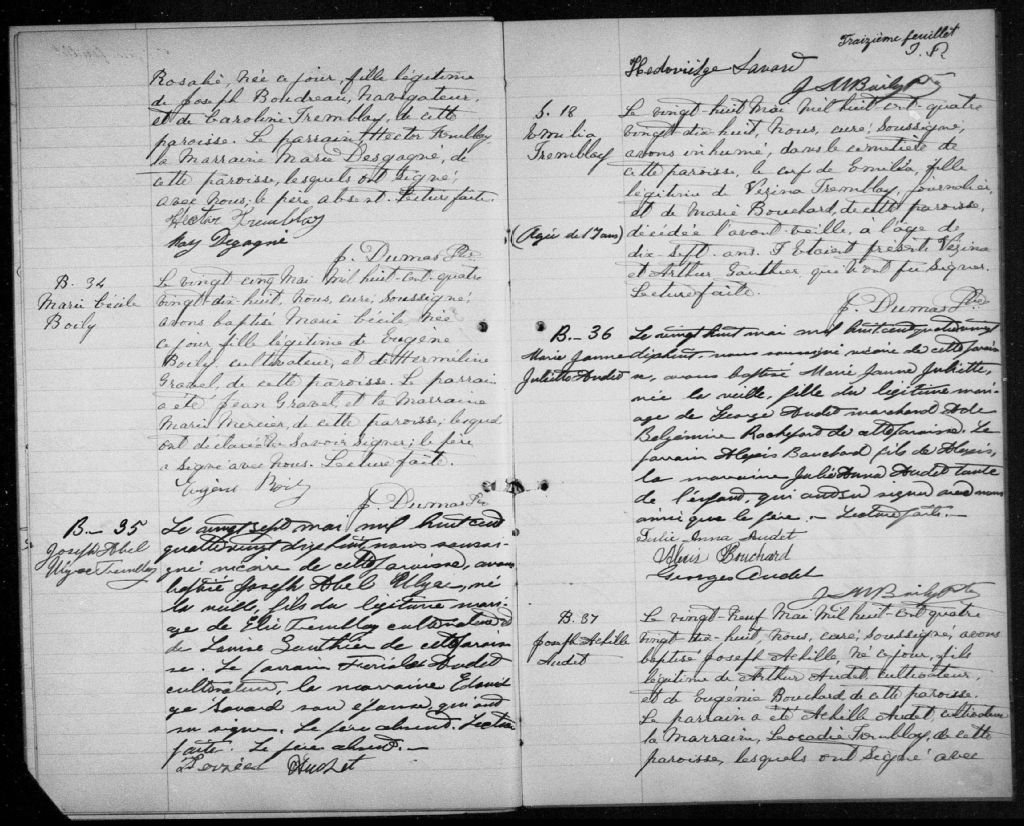 Rosalie, née ce jour, fille légitime
de Joseph Boudreau, Navigateur,
et de Caroline Tremblay, de cette
paroisse. Le parrain Hector Tremblay
la Marraine Marie Desgagné, de
cette paroisse, lesquels ont signé
avec nous; le père absent. Lecture faite.
Hector Tremblay
May Degagné
J. Dumas Ptre
B. 34
Marie Cécile
Boily
Le vingt cinq Mai Mil huit-cent-quatre
vingt-dix huit, Nous, curé, soussigné,
avons baptisé Marie Cécile Née
ce jour fille légitime de Eugène
Boily cultivateur, et de Herméline
Gravel, de cette paroisse. Le parrain
a été Jean Gravel et la Marraine
Marie Mercier, de cette paroisse; lesquels
ont déclaré ne Savoir Signer; le père
a Signé avec Nous. Lecture faite.
Eugène Boily
J. Dumas Ptre
B- 35
Joseph Abel
Tremblay
Le vingt sept mai mil huit cent
quatre vingt dix huit nous soussi-
gné vicaire de cette paroisse, avons
baptisé Joseph Abel, né
la veille, fils du légitime mari-
age de Elie Tremblay cultivateur et
de Louise Gauthier de cette parois-
se. Le parrain Audet
cultivateur, la marraine Edwid-
ge Savard son épouse, qui ont
su signer. Le père absent. Lecture
faite. Le père absent.-
Audet
Traizième feuillet
Hedoviidge Savard
J M Boily Ptre
S. 18
Emilia
Tremblay
(Agée de 17 ans)
Le vingt-huit Mai Mil huit-cent-quatre
vingt-dix-huit, Nous, curé, Soussigné,
avons inhumé, dans le cimetière de
cette paroisse, le corps de Emilia, fille
légitime de Vésina Tremblay, journalier,
et de Marie Bouchard, de cette paroisse,
décédée l'avant-veille, à l'âge de
dix Sept ans. Etaient présents Vésina
et Arthur Gauthier qui n'ont pu Signer.
Lecture faite.
J. Dumas Ptre
B.- 36
Marie Jeanne
Juliette Audet
Le vingt huit mai mil huit cent quatre vingt
dix huit, nous soussigné vicaire de cette parois-
se, avons baptisé Marie Jeanne Juliette,
née la veille, fille du légitime mari-
age de George Audet marchand & de
Belzémire Rochefort de cette paroisse. Le
parrain Alexis Bouchard fils de Alexis,
la marraine Julie Anna Audet tante
de l'enfant, qui ont su signer avec nous
ainsi que le père. - Lecture faite.-
Julie-Anna Audet
Alexis Bouchard
Georges Audet
J M Boily Ptre
B. 37
Joseph Achille
Audet
Le vingt-Neuf Mai Mil huit-cent quatre
vingt-dix-huit, Nous, curé, Soussigné, avons
baptisé Joseph Achille, Né ce jour, fils
légitime de Arthur Audet, cultivateur,
et de Eugénie Bouchard, de cette paroisse.
Le parrain a été Achille Audet, cultivateur
la Marraine, Léocadie Tremblay, de cette
paroisse, lesquels ont Signé avec